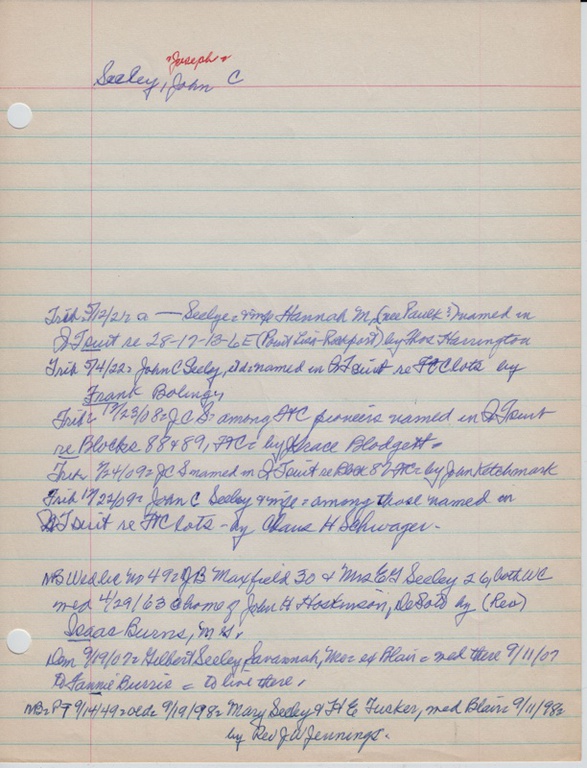 "Joseph"
Seeley, John C
Trib 5/12/21= a — Seelye & wife Hannah M, (nee Paulk?) named in
Q T suit re 28-17-13-6E (Point Lisa-Rockport) by Thos Harrington
Trib 5/4/22= John C Seeley, named in Q T suit re FtC lots by
Frank Bolinger
Trib 12/23/08= J C S= among FtC pioneers named in Q T suit
re Blocks 88 & 89, FtC= by Grace Blodgett=
Trib 7/24/09= J C S named in Q T suit re Block 87 FtC= by John Ketchmark
Trib 12/22/09= John C Seeley & wife= among those named in
Q T suit re FtC lots - by Claus H Schwager.
NB Wed lic no 49= J B Maxfield 30 & Mrs E J Seeley 26, both WC
med 4/29/63 @ home of John H Hoskinson, DeSoto by (Rev)
Isaac Burns, M G.
Dem 9/19/07= Gilbert Seeley, Savannah, Mo= ex Blair= wed there 9/11/07
to Fannie Burris = to live there.
NB= PT 9/14/49= old= 9/19/98= Mary Seeley & H E Tucker, med Blair= 9/11/98=
by Rev J W Jennings.